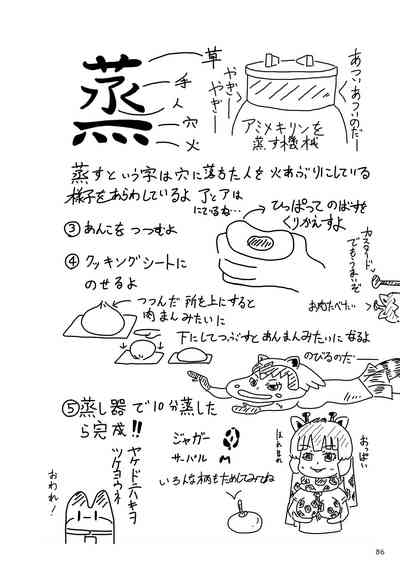 蒸
草
手
人
穴
火
やぎー
やぎー
あついあついのだー
アミメキリンを
蒸す機械
蒸すという字は穴に落ちた人を火あぶりにしている
様子をあらわしているよ
アとアは
にているね…
ひっぱってのばすを
くりかえすよ
③あんこをつつむよ
④クッキングシートに
のせるよ
カスタード
でもうまいぞ
お肉たべたい
つつんだ所を上にすると
肉まんみたいに
下にしてつぶすとあんまんみたいになるよ
のびるのだー
⑤蒸し器で10分蒸した
ら完成!!
ジャガー
サーバル
いろんな柄もためしてみてね
ヤケドニハキヲ
ツケヨウネ
おわれ!
おっぱい
86